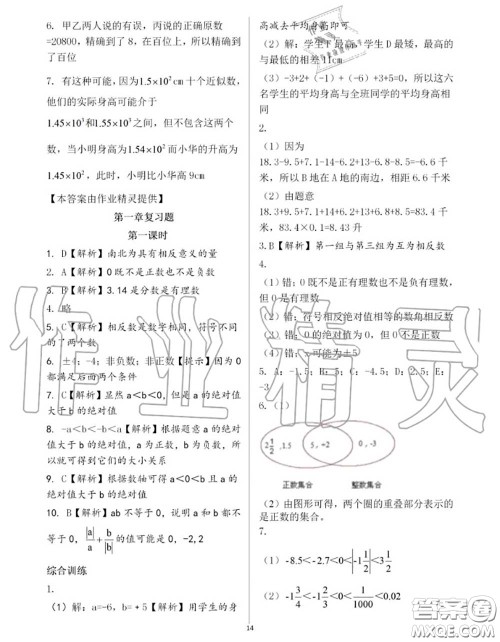 6. 甲乙两人说的有误，丙说的正确原数
=20800，精确到了8，在百位上，所以精确到
了百位
7. 有这种可能，因为1.5×10²cm 十个近似数，
他们的实际身高可能介于
1.45×10²和1.55×10²之间，但不包含这两个
数，当小明身高为1.54×10²而小华的升高为
1.45×10²，此时，小明比小华高9cm
【本答案由作业精灵提供】
第一章复习题
第一课时
1. D【解析】南北为具有相反意义的量
2. A【解析】0既不是正数也不是负数
3. B【解析】3.14是分数是有理数
4. 略
5. C【解析】相反数是数字相同，符号不同
的了两个数
6. ±4；-4；非负数；非正数【提示】因为0
都满足后面两个条件
7. C【解析】显然a<b<0，但是a的绝对值
大于b的绝对值
8. -a<b<-b<a【解析】根据题意a的绝对
值大于b的绝对值，a为正数，b为负数，所
以就可得到它们的大小关系
9. C【解析】根据数轴可得a<0<b且a的
绝对值大于b的绝对值
10. B【解析】ab不等于0，说明a和b都不
等于0，|a|/a+b/|b|的值可能是0，-2,2
综合训练
1.
（1）解：a=-6，b=+5【解析】用学生的身
高减去平均身高即可
（2）解：学生F最高，学生D最矮，最高的
与最低的相差11cm
（3）-3+2+（-1）+（-6）+3+5=0，所以这六
名学生的平均身高与全班同学的平均身高相
同
2.
（1）因为
18.3-9.5+7.1-14-6.2+13-6.8-8.5=-6.6千
米，所以B地在A地的南边，相距6.6千米
（2）由题意
18.3+9.5+7.1+14+6.2+13+6.8+8.5=83.4千
米，83.4×0.1=8.43升
3.B【解析】第一组与第三组为互为相反数
4.
（1）错；0既不是正有理数也不是负有理数，
但0是有理数
（2）错；符号相反绝对值相等的数角相反数
（3）错；0的绝对值为0，但0不是正数
（4）错；x可能为±5
5. A：-1.5；B：5；C：-4.5；D：2.5；E：
-3
6.（1）
2 1/2，1.5
5，+2
0，-3
正数集合
整数集合
（2）由图形可得，两个圈的重叠部分表示的
是正数的集合。
7.
（1）-8.5<-2.7<0<|-1/2|<|-3 1/2|
（2）-1 3/4<-1/2<0<1/1000<0.02
14
作业精灵
答案圈
MXQE.COM